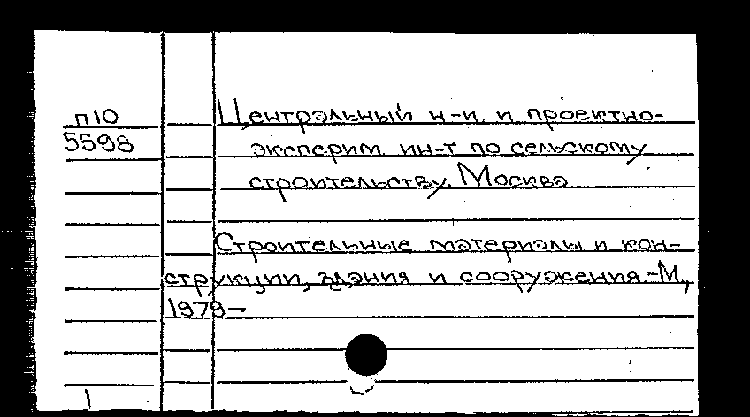 п10
5598
Центральный н-и. и проектно-
эксперим. ин-т по сельскому
строительству. Москва
Строительные материалы и кон-
струкции, здания и сооружения.-М.,
1979-
1